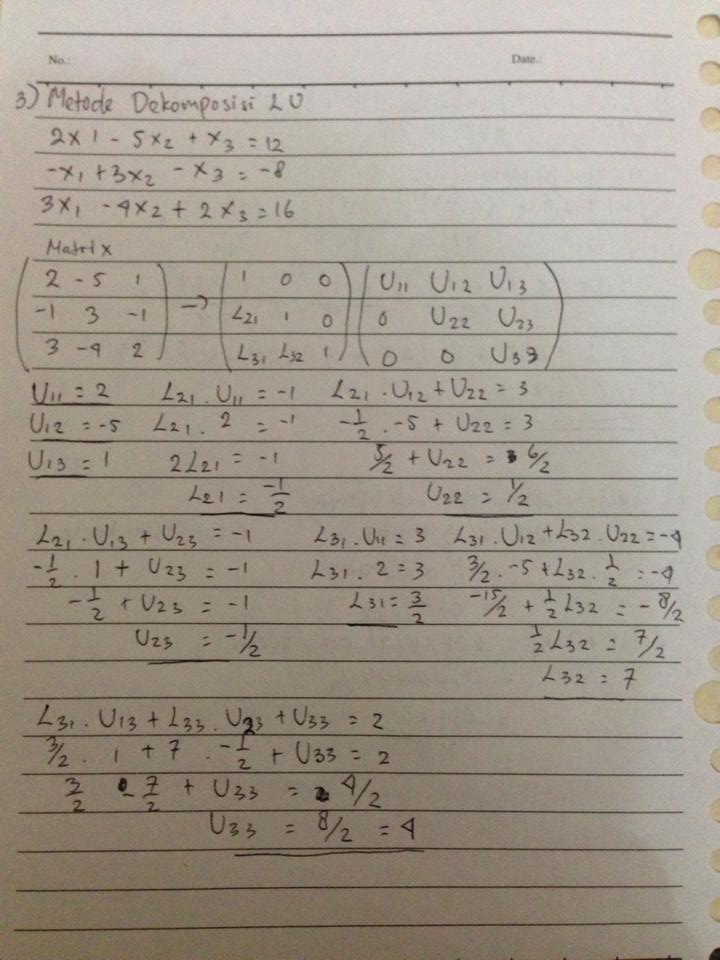 No.: Date.:
3) Metode Dekomposisi LU
2x1 - 5x₂ + x₃ = 12
-x₁ + 3x₂ - x₃ = -8
3x₁ - 4x₂ + 2x₃ = 16
Matrix
2 -5 1 → 1 0 0 U₁₁ U₁₂ U₁₃
-1 3 -1 L₂₁ 1 0 0 U₂₂ U₂₃
3 -4 2 L₃₁ L₃₂ 1 0 0 U₃₃
U₁₁ = 2 L₂₁ . U₁₁ = -1 L₂₁ . U₁₂ + U₂₂ = 3
U₁₂ = -5 L₂₁ . 2 = -1 -1/2 . -5 + U₂₂ = 3
U₁₃ = 1 2L₂₁ = -1 5/2 + U₂₂ = 6/2
L₂₁ = -1/2 U₂₂ = 1/2
L₂₁ . U₁₃ + U₂₃ = -1 L₃₁ . U₁₁ = 3 L₃₁ . U₁₂ + L₃₂ . U₂₂ = -4
-1/2 . 1 + U₂₃ = -1 L₃₁ . 2 = 3 3/2 . -5 + L₃₂ . 1/2 = -4
-1/2 + U₂₃ = -1 L₃₁ = 3/2 -15/2 + 1/2 L₃₂ = -8/2
U₂₃ = -1/2 1/2 L₃₂ = 7/2
L₃₂ = 7
L₃₁ . U₁₃ + L₃₃ . U₂₃ + U₃₃ = 2
3/2 . 1 + 7 . -1/2 + U₃₃ = 2
3/2 - 7/2 + U₃₃ = 4/2
U₃₃ = 8/2 = 4